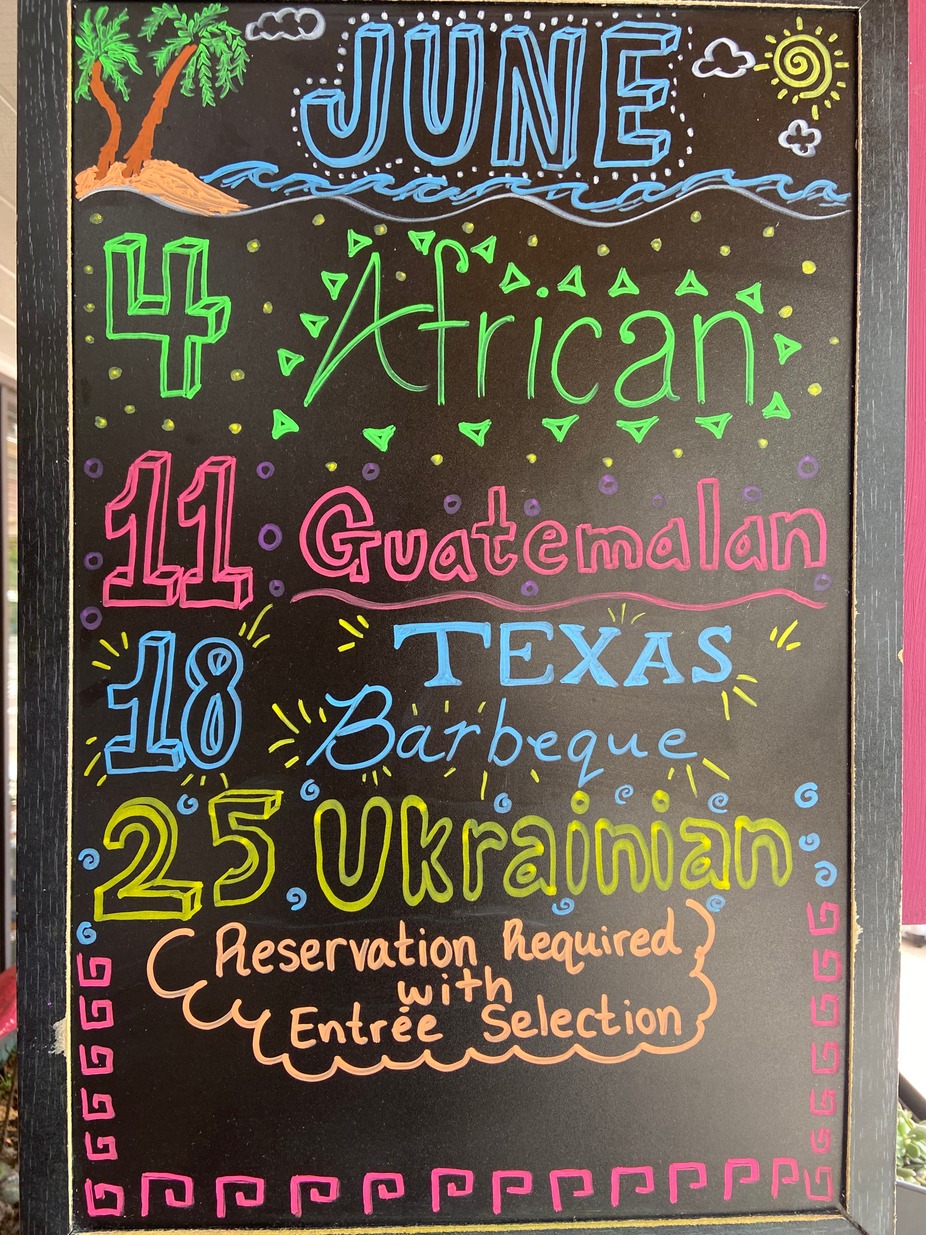 JUNE
4 African
11 Guatemalan
18 TEXAS
Barbeque
25 Ukrainian
Reservation Required
with
Entrée Selection